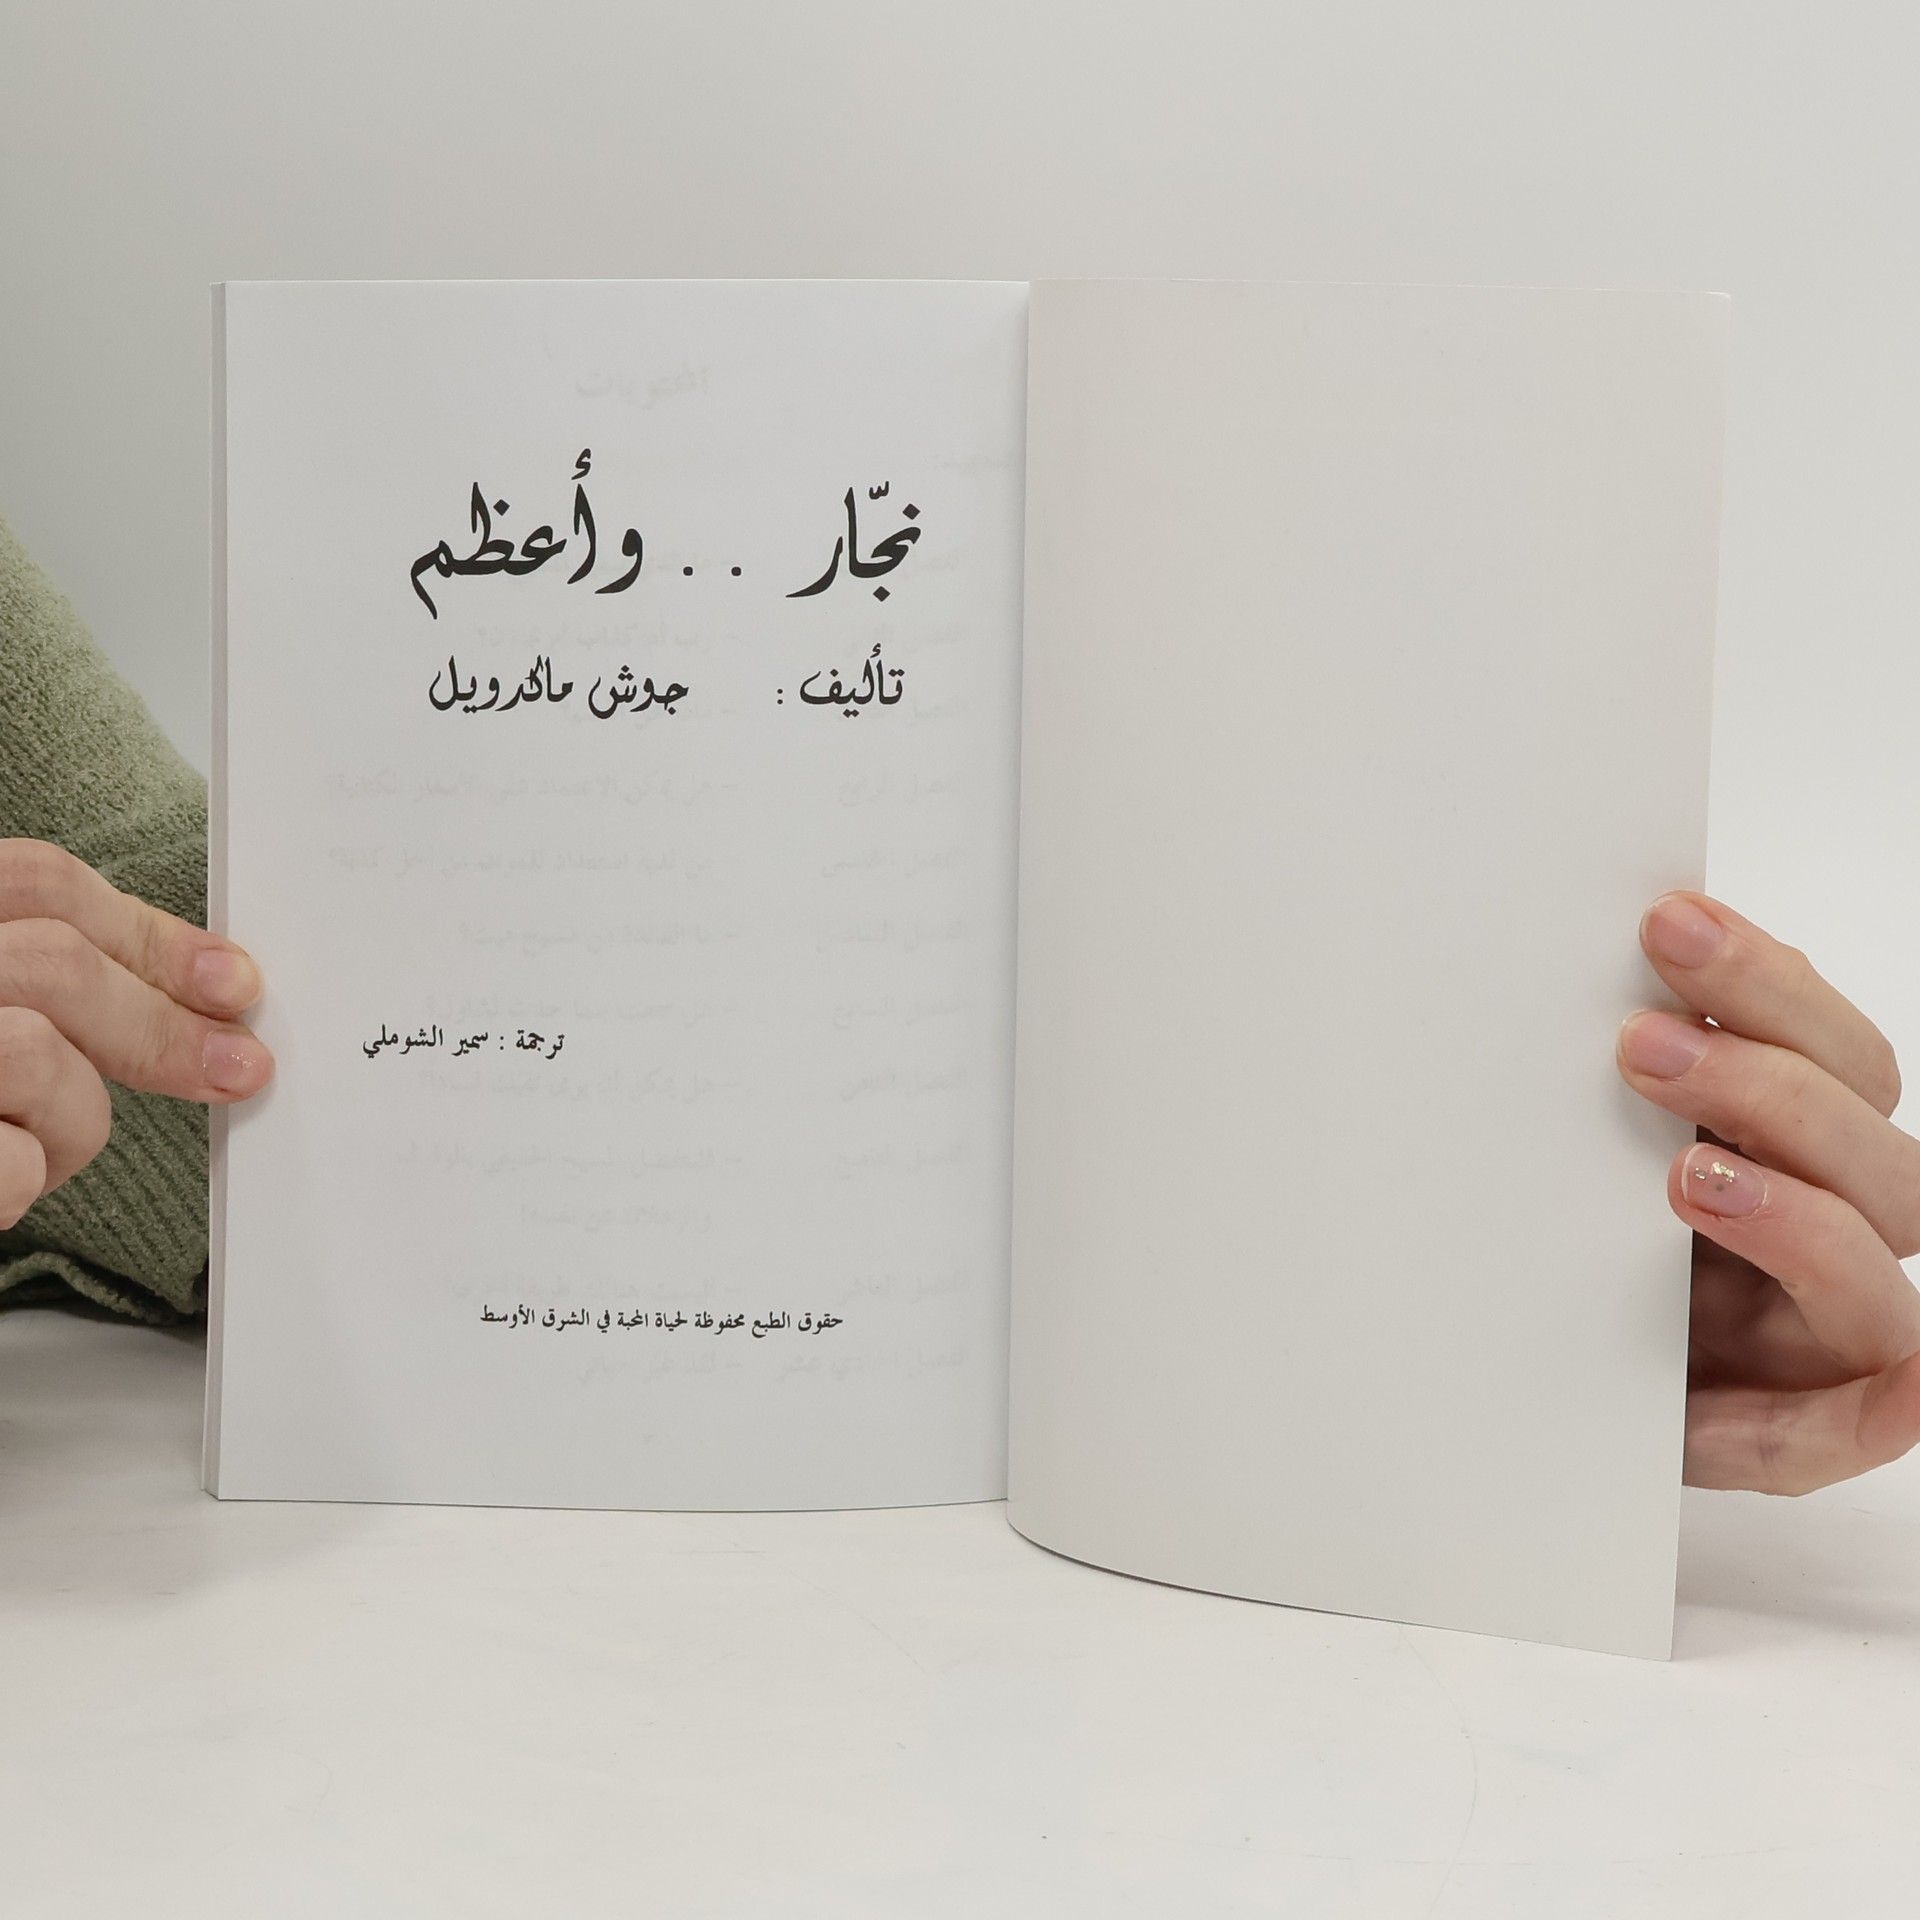 نجّار . . وأعظم
تأليف : جوش ماكدرويل
ترجمة : سمير الشوملي
حقوق الطبع محفوظة لحياة المحبة في الشرق الأوسط